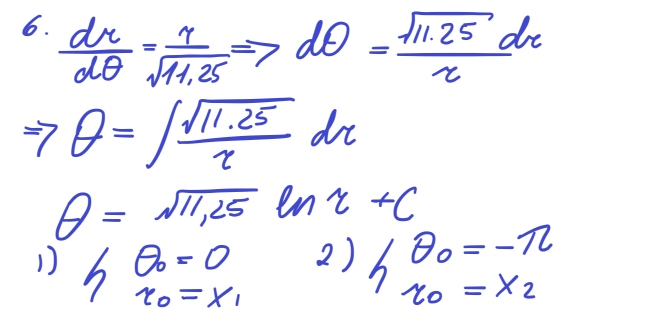 6. dr/dθ = r/√11,25 => dθ = √11.25/r dr
=> θ = ∫ √11.25/r dr
θ = √11,25 ln r + C
1) { θ₀ = 0 2) { θ₀ = -π
r₀ = x₁ r₀ = x₂